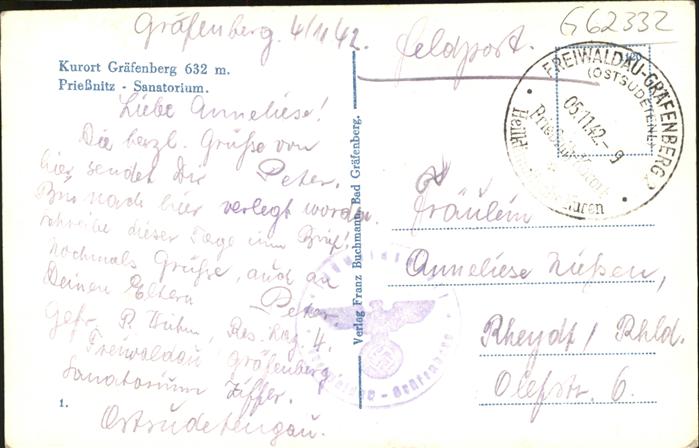 G 62332
Gräfenberg. 4/11 42.
Feldpost.
Kurort Gräfenberg 632 m.
Prießnitz - Sanatorium.
Liebe Anneliese!
Die herzl. Grüße von
hier sendet Dir Peter.
Bin nach hier verlegt worden.
schreibe dieser Tage einen Brief!
Nochmals Grüße, auch an
Deinen Eltern Peter
Gefr. P. Res. Laz. 4.
Freiwaldau/Gräfenberg
Sanatorium Ziffer.
Ostsudetengau.
1.
Verlag Franz Buchmann, Bad Gräfenberg.
FREIWALDAU-GRÄFENBERG
(OSTSUDETENL)
05.11.42.-9
Fräulein
Anneliese Nießen,
Rheydt/Rhld.
Olefstr. 6.